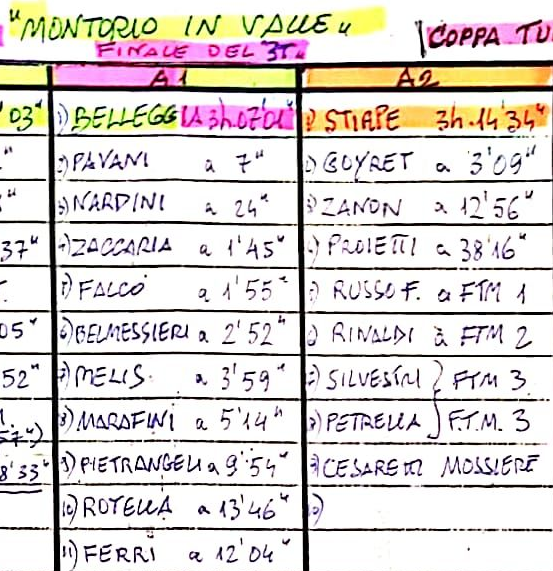 "MONTORIO IN VALLE"
FINALE DEL 3T"
COPPA TU
A1
A2
03"
1) BELLEGGIA 3h.07'01"
1) STIRPE 3h.14'34"
2) PAVANI a 7"
2) GOYRET a 3'09"
3) NARDINI a 24"
3) ZANON a 12'56"
37"
4) ZACCARIA a 1'45"
4) PROIETTI a 38'16"
5) FALCÒ a 1'55"
5) RUSSO F. a FTM 1
05"
6) BELMESSIERI a 2'52"
6) RINALDI a FTM 2
52"
7) MELIS. a 3'59"
7) SILVESTRI } FTM 3
57")
8) MARAFINI a 5'14"
8) PETRELLA } F.T.M. 3
8'33"
9) PIETRANGELI a 9'54"
9) CESARETTI MOSSIERE
10) ROTELLA a 13'46"
10)
11) FERRI a 12'04"